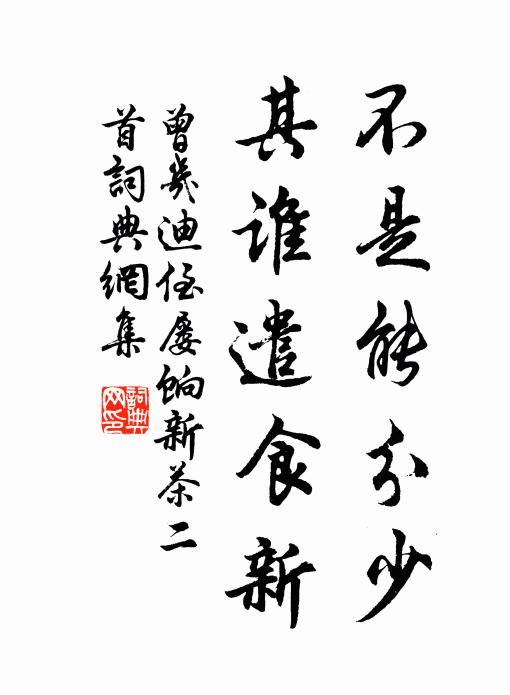 不是能分少
其谁遣食新
曾幾迪侄屡餉新茶二
首詞典網集
詞典
网印